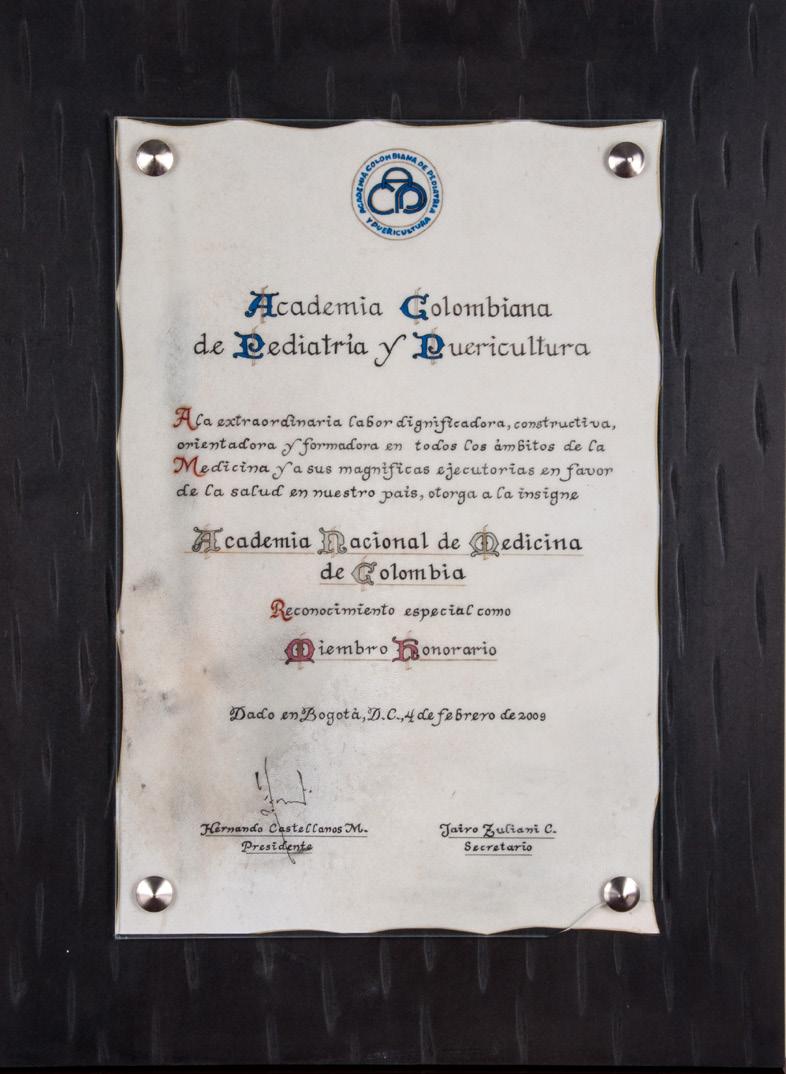 ACADEMIA COLOMBIANA DE PEDIATRIA
Y PUERICULTURA
Academia Colombiana
de Pediatría y Puericultura
A la extraordinaria labor dignificadora, constructiva,
orientadora y formadora en todos los ámbitos de la
Medicina y a sus magnificas ejecutorias en favor
de la salud en nuestro país, otorga a la insigne
Academia Nacional de Medicina
de Colombia
Reconocimiento especial como
Miembro Honorario
Dado en Bogotà, D.C., 4 de febrero de 2009
Hernando Castellanos M.
Presidente
Jairo Zuliani C.
Secretario